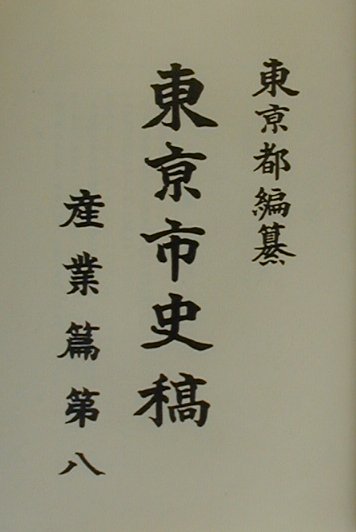 東亰都編纂
東亰市史稿
産業篇第八